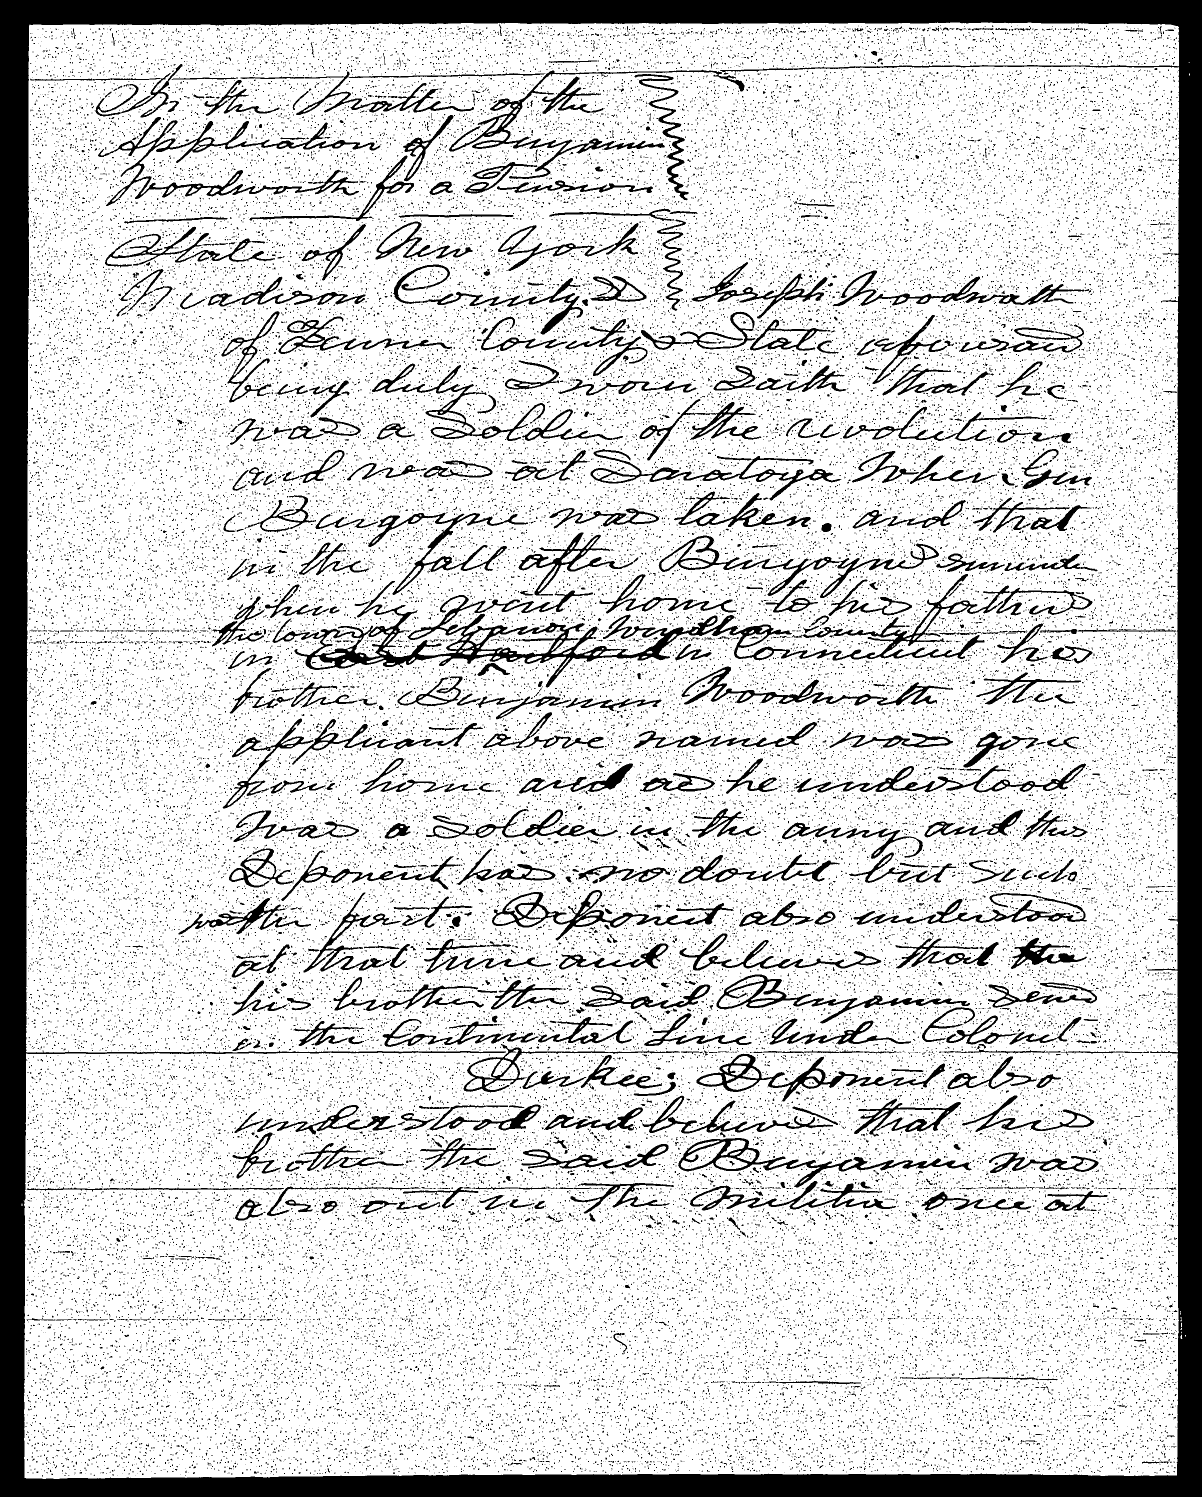 In the Matter of the
Application of Benjamin
Woodworth for a Pension
State of New York
Madison County. S Joseph Woodworth
of Fenner County & State aforesaid
being duly Sworn Saith that he
was a Soldier of the revolution
and was at Saratoga When Gen
Burgoyne was taken. and that
in the fall after Burgoynes surrender
when he went home to his fathers
the town of Lebanon, Windham County
in East Hartford in Connecticut his
brother. Benjamin Woodworth the
applicant above named was gone
from home and as he understood
was a soldier in the army and this
Deponent has no doubt but such
was the fact. Deponent also understood
at that time and believes that the
his brother the said Benjamin served
in the Continental Line under Colonel
Durkee; Deponent also
understood and believes that his
brother the said Benjamin was
also out in the militia once at